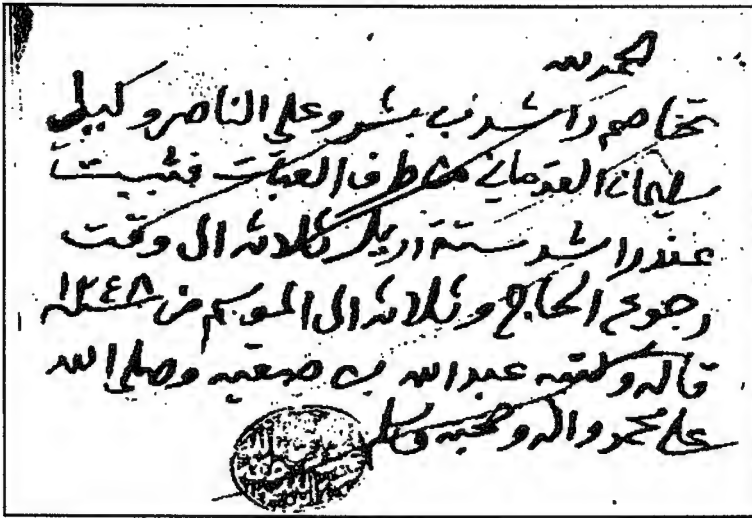 الحمد لله
تخاصم راشد بن بشر وعلي الناصر وكيل
سليمان من طرف فثبت
عند راشد ستة اريل ثلاثه الى وقت
رجوع الحاج وثلاثه الى الموسم من سنة ١٢٤٨
قاله وكتبه عبد الله بن صعيه وصلى الله
على محمد واله وصحبه وسلم